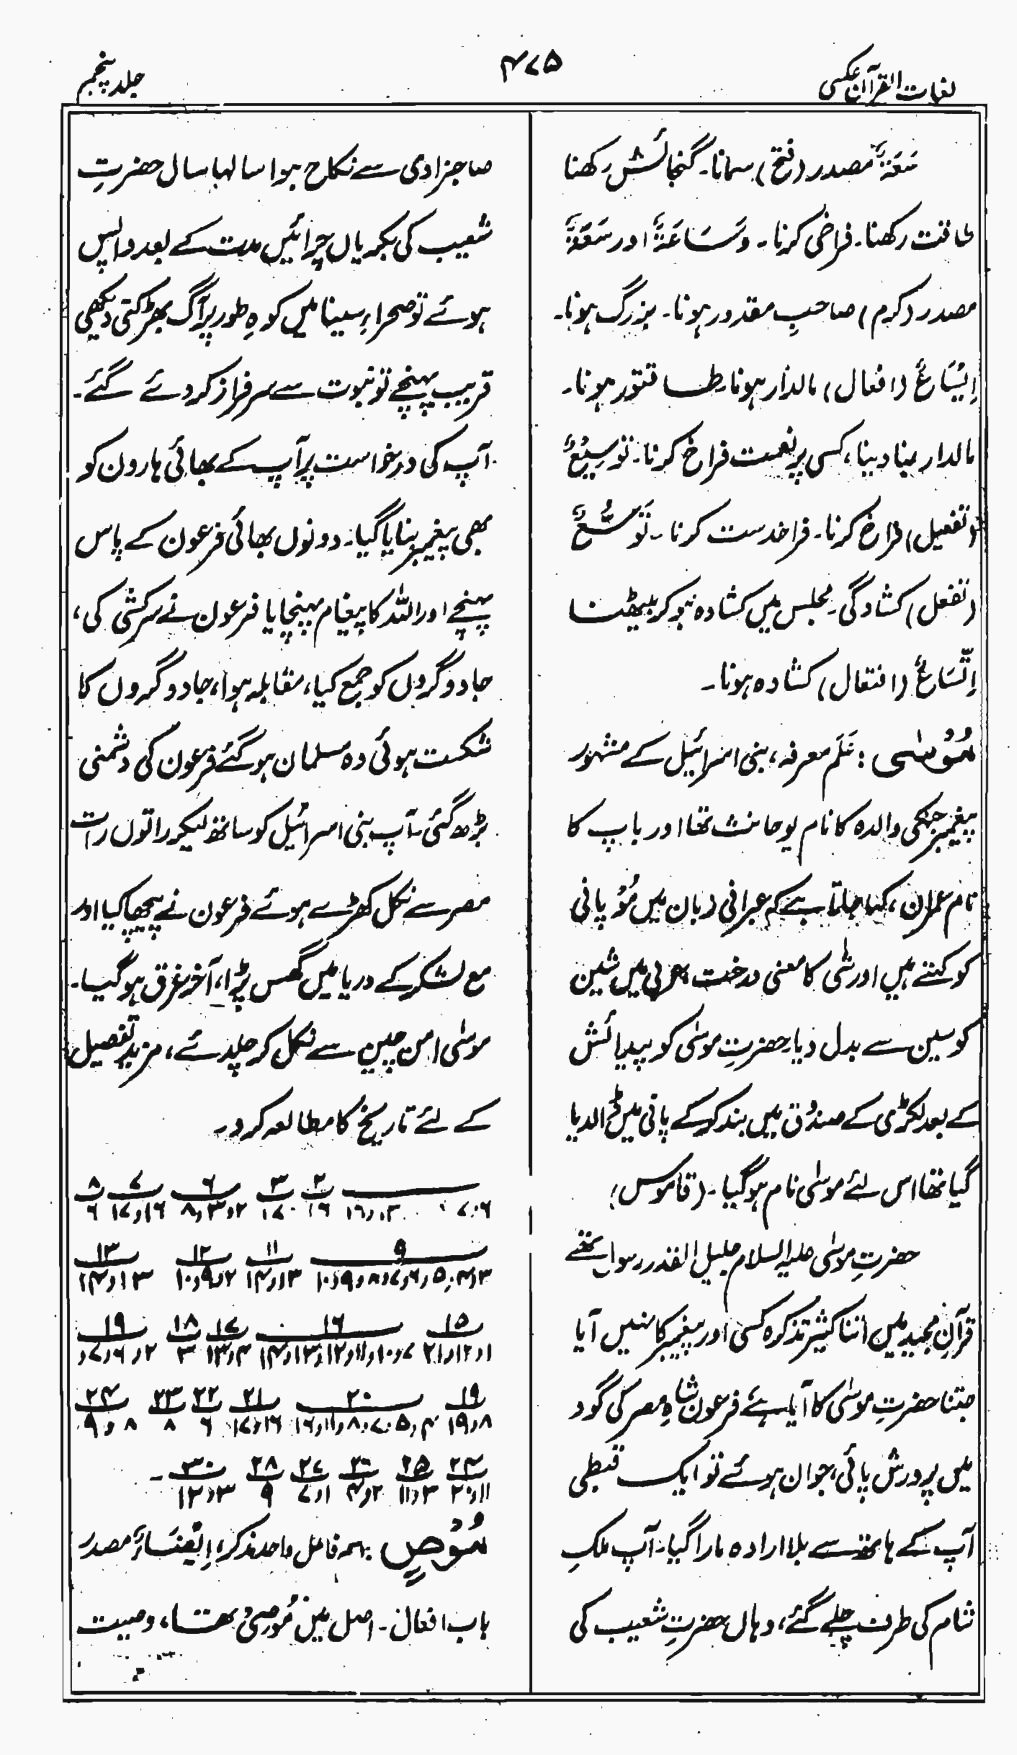 لغات القرآن عکسی
۴۷۵
جلد پنجم
سَعَۃٌ مصدر (فتح) سمانا۔ گنجائش رکھنا
طاقت رکھنا۔ فراخی کرنا۔ وَسَاعَۃٌ اور سَعَۃٌ
مصدر (کرم) صاحبِ مقدور ہونا۔ بزرگ ہونا۔
اِیْسَاعٌ (افعال) مالدار ہونا۔ طاقتور ہونا۔
مالدار بنا دینا، کسی پر نعمت فراخ کرنا۔ تَوْسِیْعٌ
(تفعیل) فراخ کرنا۔ فراخدست کرنا۔ تَوَسُّعٌ
(تفعل) کشادگی۔ مجلس میں کشادہ ہوکر بیٹھنا
اِتِّسَاعٌ (افتعال) کشادہ ہونا۔
مُوْسٰی: عَلَم معرفہ، بنی اسرائیل کے مشہور
پیغمبر جنکی والدہ کا نام یوحانث تھا اور باپ کا
نام عمران، کہا جاتا ہے کہ عبرانی زبان میں مُوْ پانی
کو کہتے ہیں اور شٰی کا معنی درخت، عربی میں شین
کو سین سے بدل دیا، حضرتِ موسٰی کو پیدائش
کے بعد لکڑی کے صندوق میں بند کرکے پانی میں ڈالدیا
گیا تھا اس لئے موسٰی نام ہوگیا۔ (قاموس)
حضرتِ موسٰی علیہ السلام جلیل القدر رسول تھے
قرآن مجید میں اتنا کثیر تذکرہ کسی اور پیغمبر کا نہیں آیا
جتنا حضرتِ موسٰی کا آیا ہے فرعون شاہِ مصر کی گود
میں پرورش پائی، جوان ہوئے تو ایک قبطی
آپ کے ہاتھ سے بلا ارادہ مارا گیا۔ آپ ملکِ
شام کی طرف چلے گئے، وہاں حضرتِ شعیب کی
صاحزادی سے نکاح ہوا سالہا سال حضرتِ
شعیب کی بکریاں چرائیں مدت کے بعد واپس
ہوئے تو صحراءِ سینا میں کوہِ طور پر آگ بھڑکتی دیکھی
قریب پہنچے تو نبوت سے سرفراز کردئے گئے۔
آپ کی درخواست پر آپ کے بھائی ہارون کو
بھی پیغمبر بنایا گیا۔ دونوں بھائی فرعون کے پاس
پہنچے اور اللہ کا پیغام پہنچایا فرعون نے سرکشی کی،
جادوگروں کو جمع کیا، مقابلہ ہوا، جادوگروں کا
شکست ہوئی وہ مسلمان ہوگئے فرعون کی دشمنی
بڑھ گئی۔ آپ بنی اسرائیل کو ساتھ لیکر راتوں رات
مصر سے نکل کھڑے ہوئے فرعون نے پیچھا کیا اور
مع لشکر کے دریا میں گھس پڑا، آخر غرق ہوگیا۔
موسٰی امن چین سے نکل کر چلدئے، مزید تفصیل
کے لئے تاریخ کا مطالعہ کرو۔
۲ ۳ ۶ ۷ ۸
۱۶ ۱۷ ۲،۳،۸ ۱۶،۱۷ ۶
۹ ۱۱ ۱۲ ۱۳
۳،۴،۵،۶،۷،۸،۹،۱۰ ۳،۱۴ ۲،۹،۱۰ ۳،۱،۱۴
۱۵ ۱۶ ۱۷ ۱۸ ۱۹
۱،۱۲،۲۱ ۷،۱۰،۱۱،۱۲،۱۳،۱۴ ۴،۱۳ ۳ ۲،۶،۷
۱۹ ۲۰ ۲۱ ۲۲ ۲۳ ۲۴
۸،۱۹ ۴،۵،۷،۸،۱۱،۱۶ ۱۶،۱۷ ۶ ۸ ۸،۹
۲۴ ۲۵ ۲۶ ۲۷ ۲۸ ۳۰
۱۱،۲۰ ۳،۱۱ ۲،۴ ۱،۷ ۹ ۳،۱۲
مُوْصٍ: اسم فاعل واحد مذکر، اِیْصَاءٌ مصدر
باب افعال۔ اصل میں مُوصِیٌ تھا، وصیت